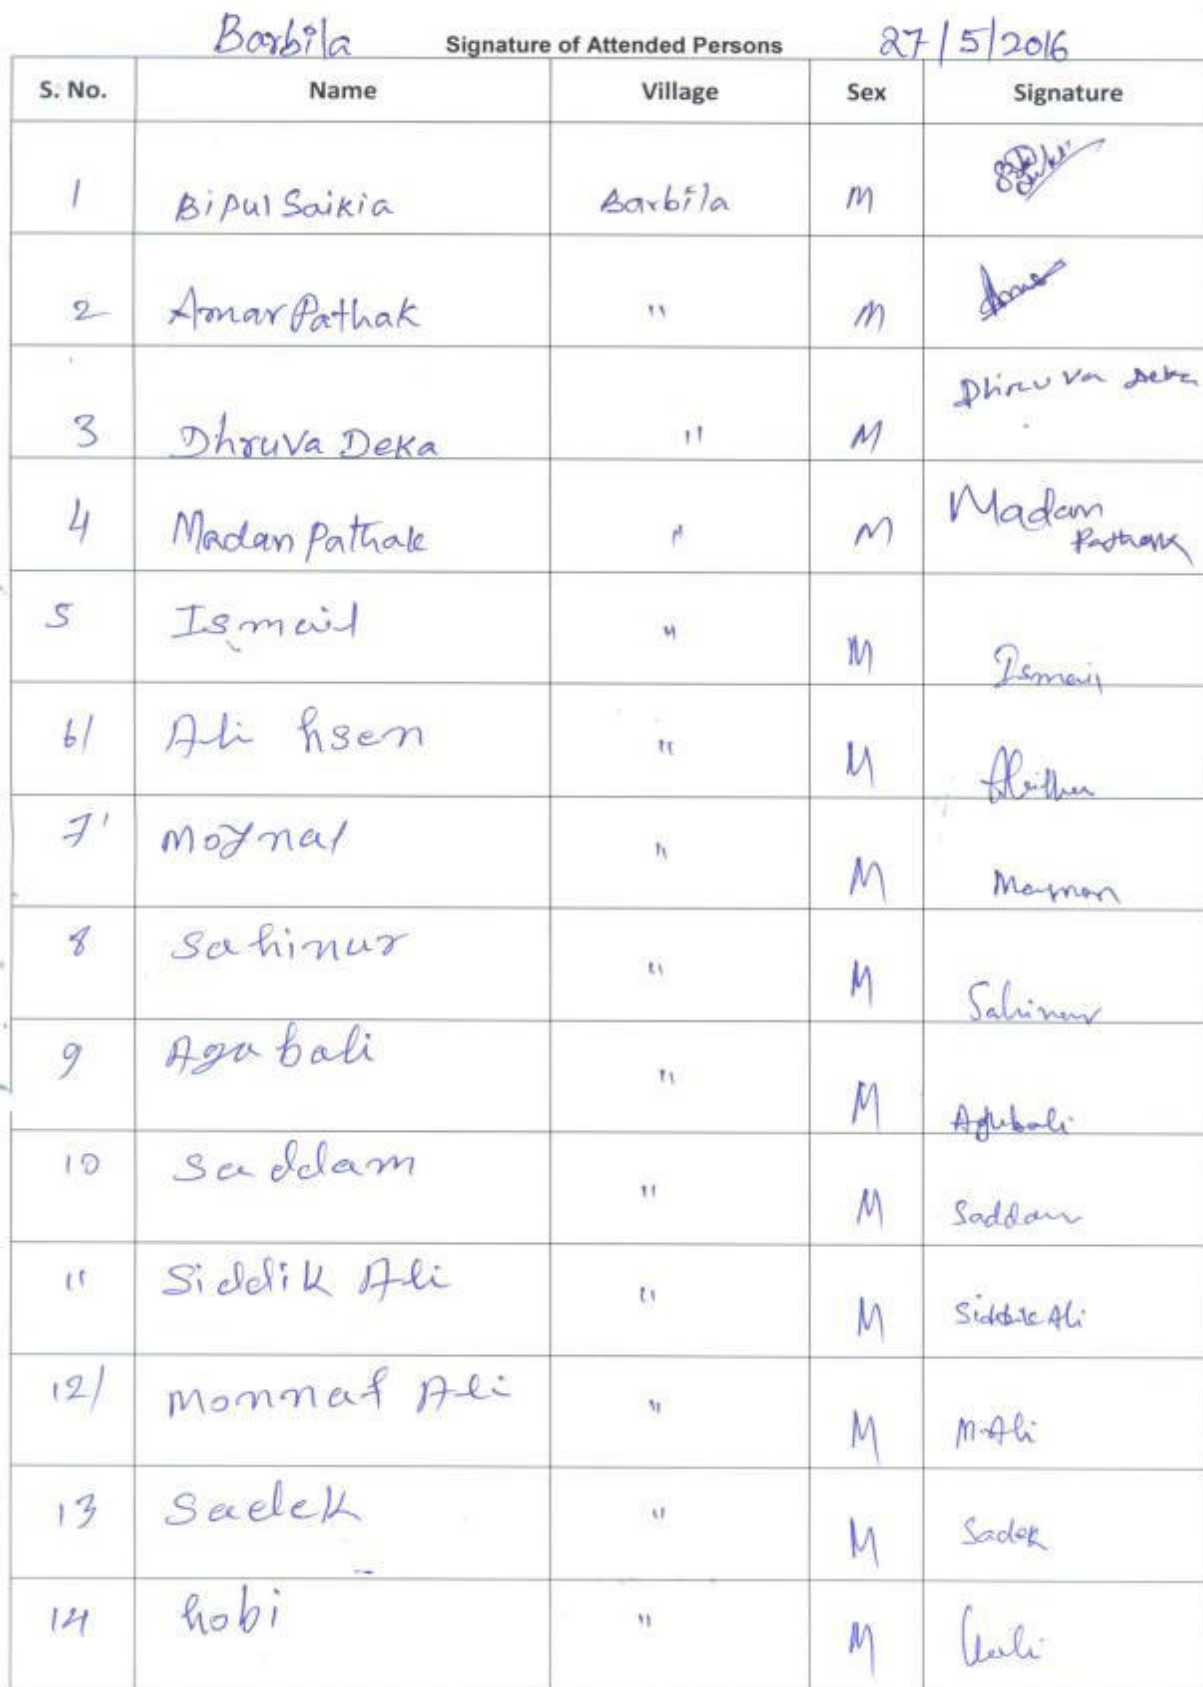 Barbila Signature of Attended Persons 27/5/2016
S. No. Name Village Sex Signature
1 Bipul Saikia Barbila M
2 Amar Pathak " M
3 Dhruva Deka " M Dhruva Deka
4 Madan Pathak " M Madan
Pathak
5 Ismail " M Ismail
6/ Ali hsen " M
7' Moynal " M
8 Sahinur " M Sahinur
9 Agubali " M Agubali
10 Saddam " M Saddam
11 Siddik Ali " M Siddik Ali
12/ Monnaf Ali " M M. Ali
13 Sadek " M Sadek
14 hobi " M